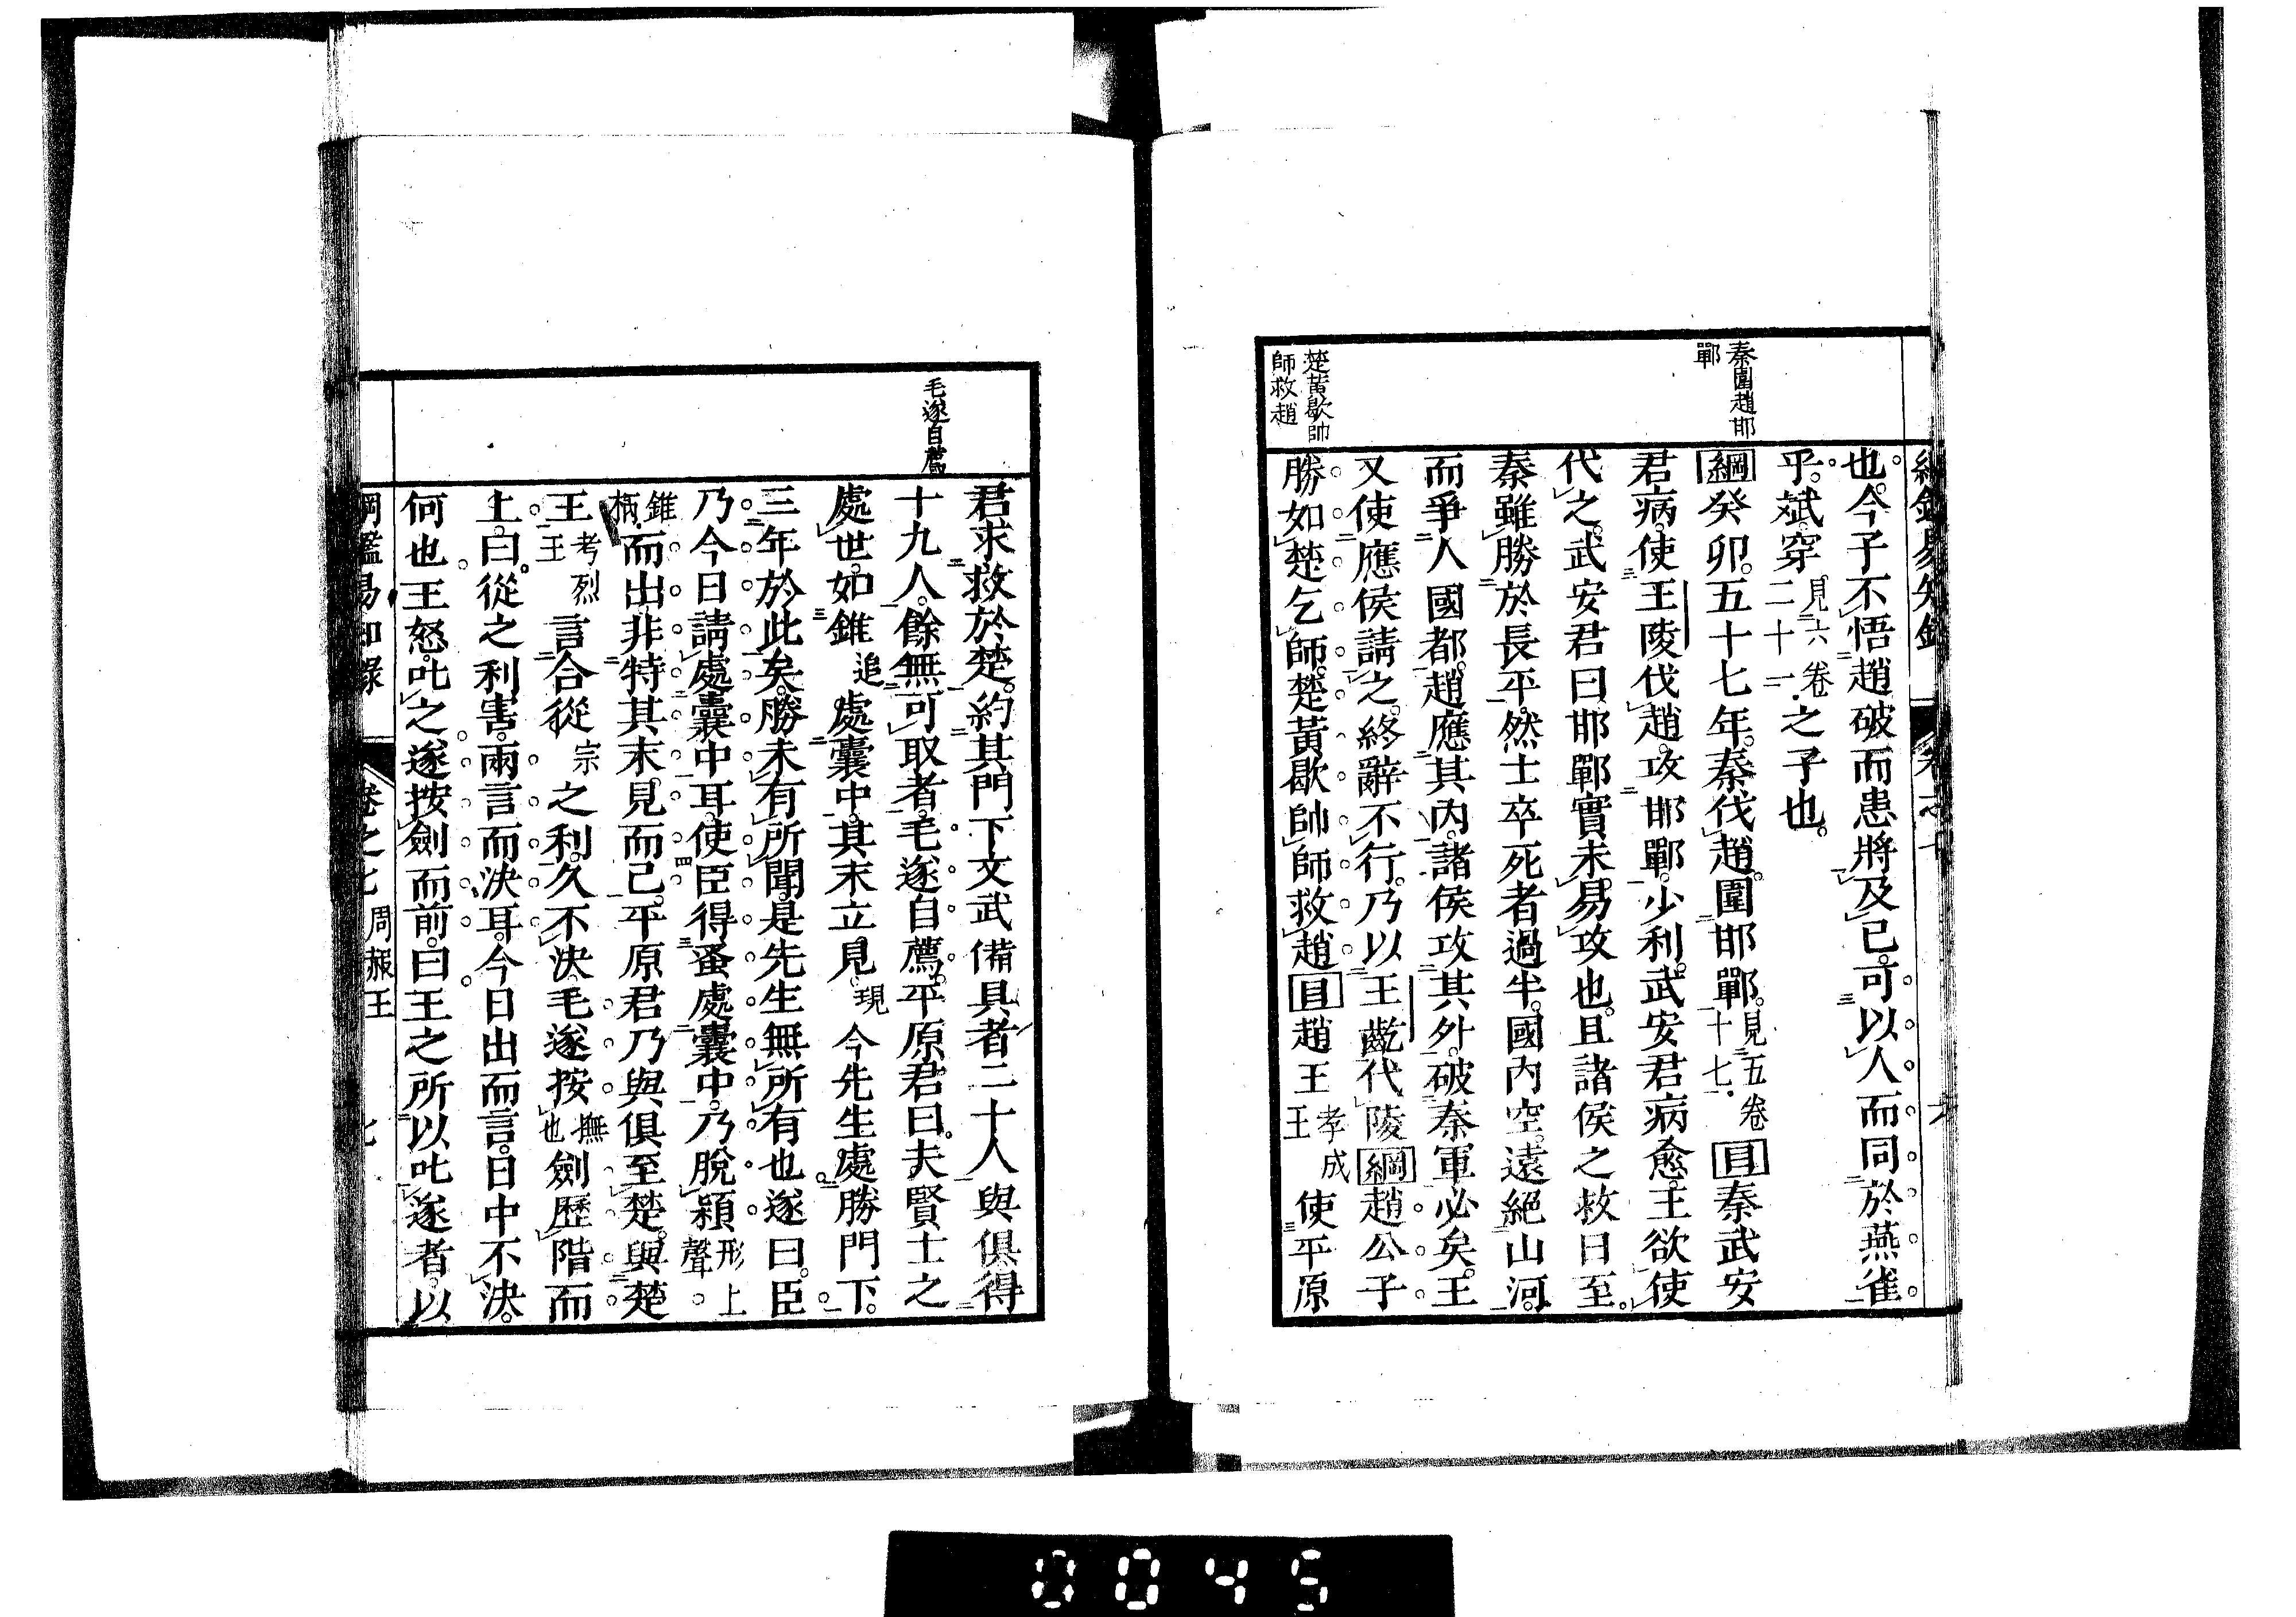 秦圍趙邯
鄲
楚黃歇帥
師救趙
也今子不悟趙破而患將及已可以人而同於燕雀
乎斌穿見六卷二十一之子也
綱癸卯五十七年秦伐趙圍邯鄲見五卷十七目秦武安
君病使王陵伐趙攻邯鄲少利武安君病愈王欲使
代之武安君曰邯鄲實未易攻也且諸侯之救日至
秦雖勝於長平然士卒死者過半國內空遠絕山河
而爭人國都趙應其內諸侯攻其外破秦軍必矣王
又使應侯請之終辭不行乃以王齕代陵綱趙公子
勝如楚乞師楚黃歇帥師救趙目趙王孝成王使平原
毛遂自薦
君求救於楚約其門下文武備具者二十人與俱得
十九人餘無可取者毛遂自薦平原君曰夫賢士之
處世如錐追處囊中其末立見現今先生處勝門下
三年於此矣勝未有所聞是先生無所有也遂曰臣
乃今日請處囊中耳使臣得蚤處囊中乃脫穎形上聲
錐柄而出非特其末見而已平原君乃與俱至楚與楚
王考烈王言合從宗之利久不決毛遂按撫也劍歷階而
上曰從之利害兩言而決耳今日出而言日中不決
何也王怒叱之遂按劍而前曰王之所以叱遂者以
綱鑑易知錄 卷之七 周赧王 七
0045